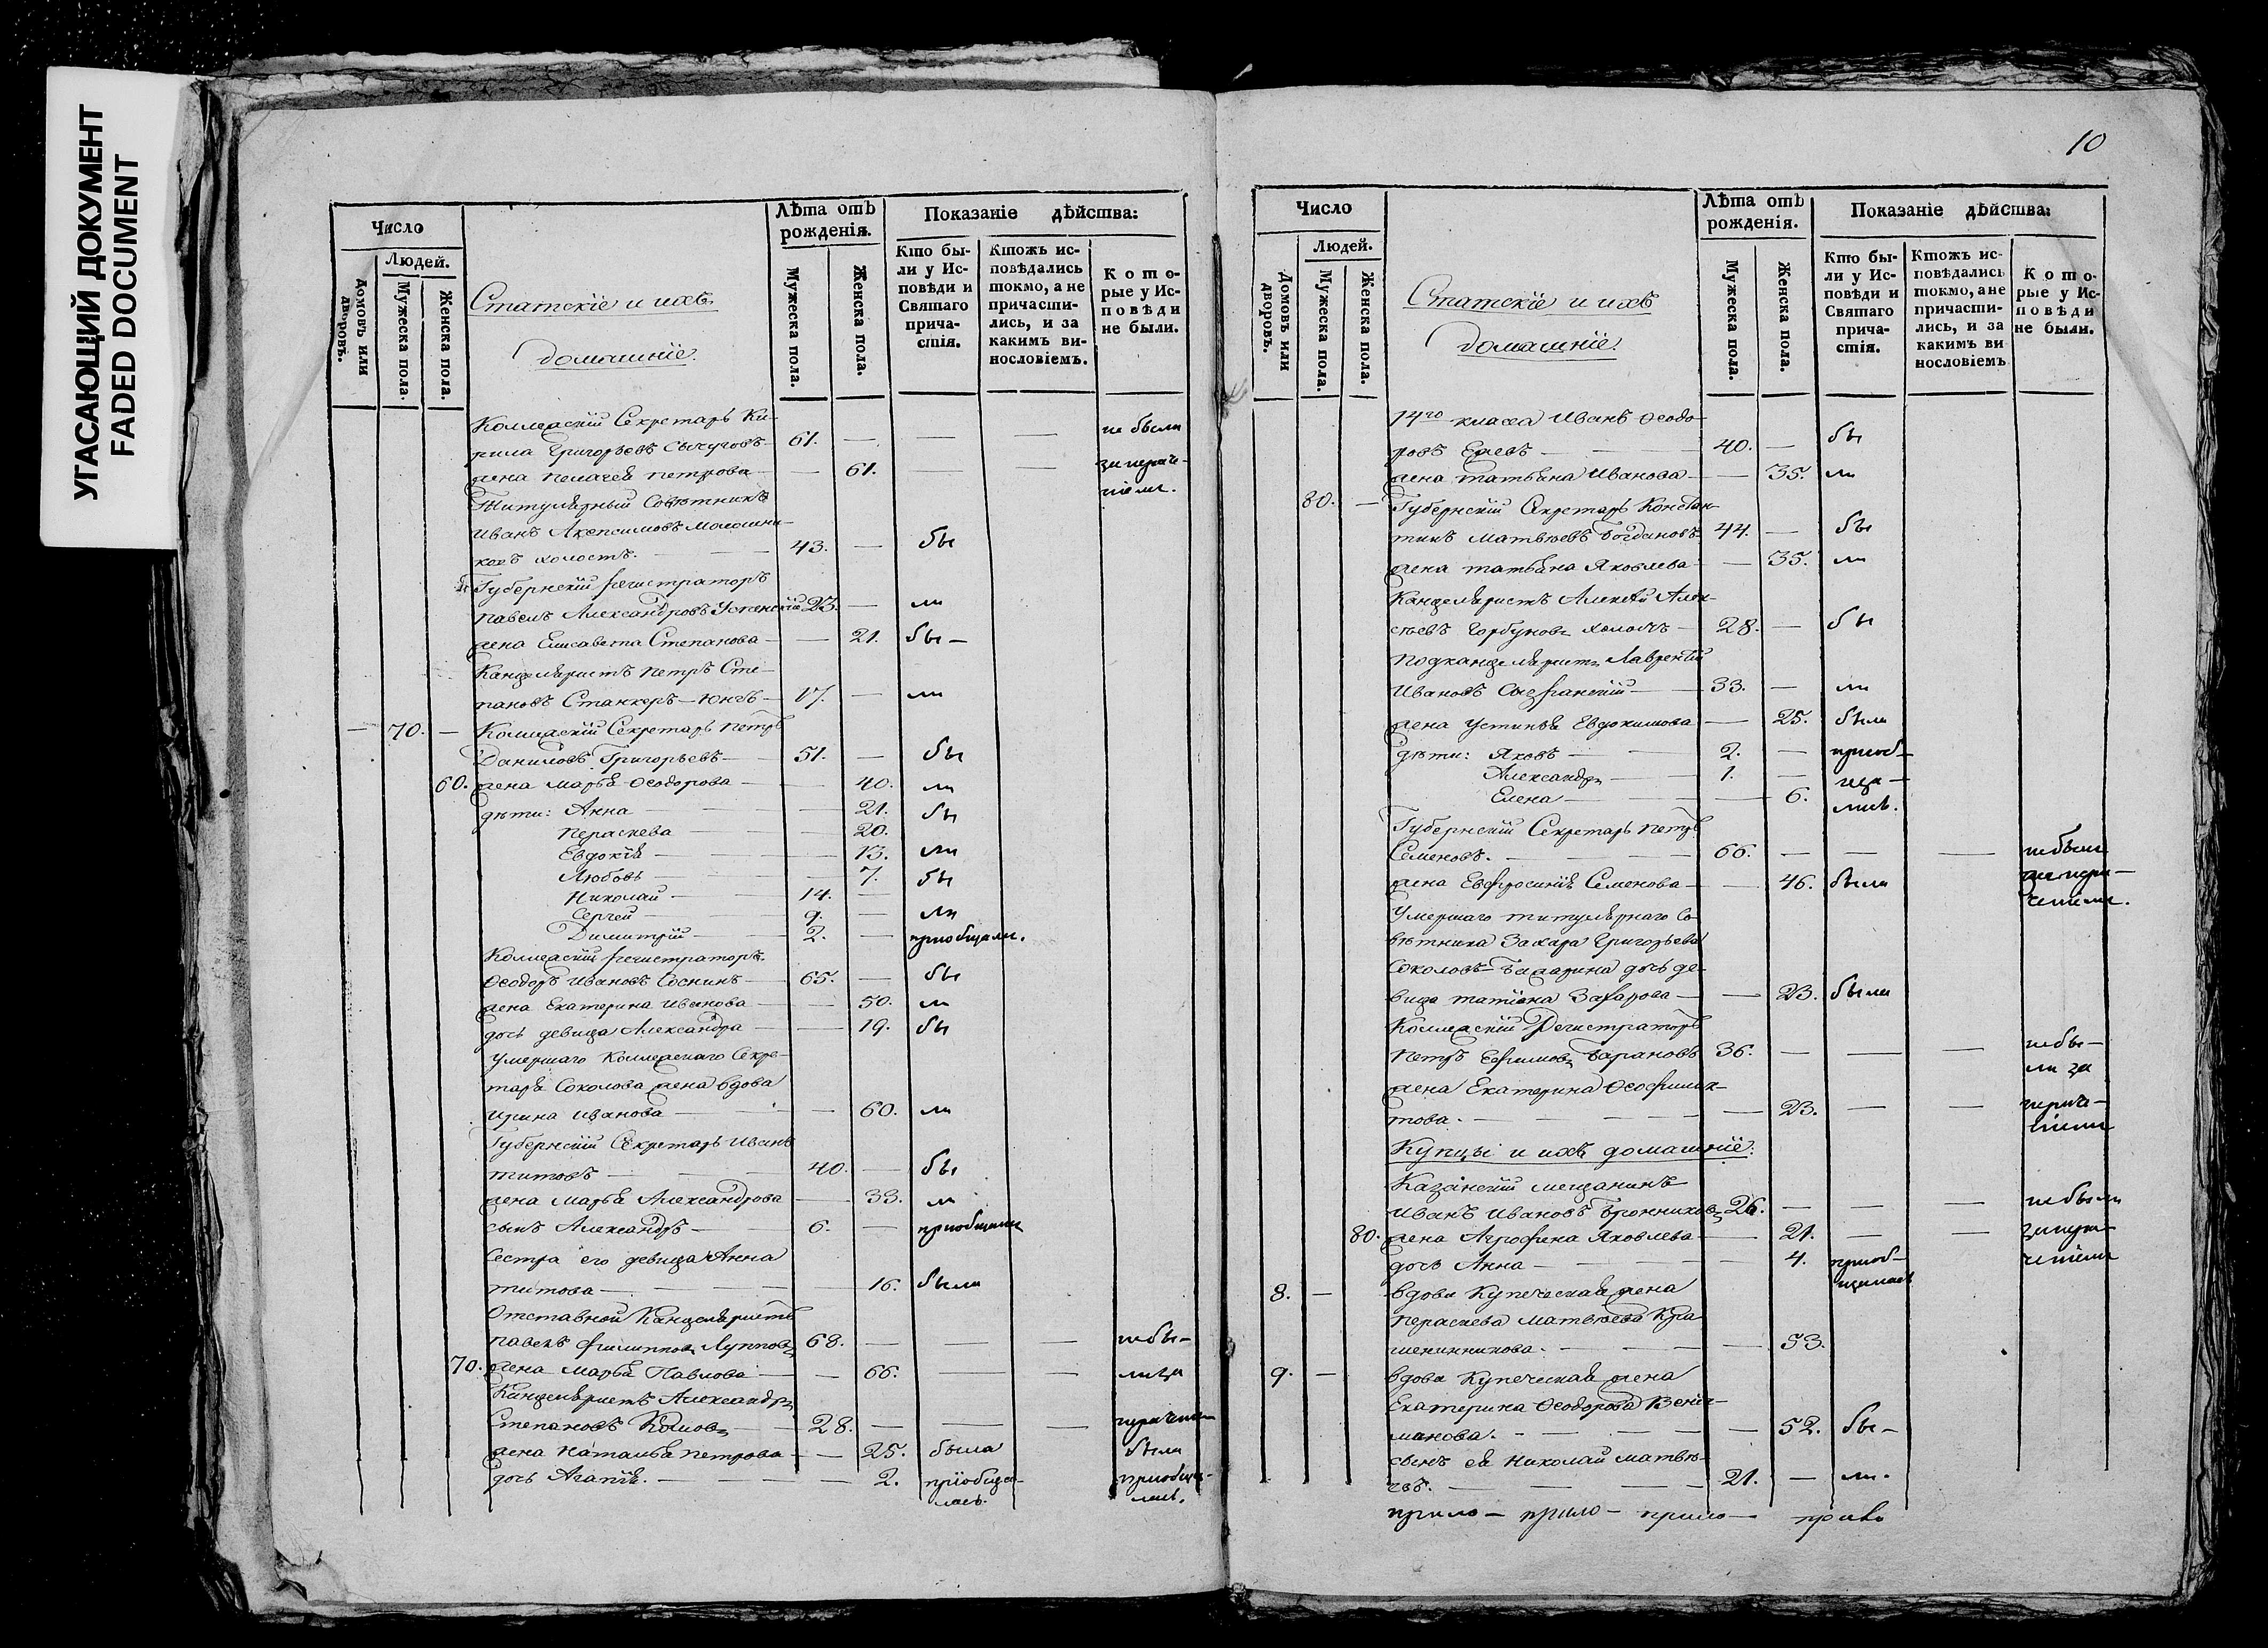 УГАСАЮЩИЙ ДОКУМЕНТ
FADED DOCUMENT
Число
Людей.
Домовъ или дворовъ.
Мужеска пола.
Женска пола.
Статскіе и ихъ
домашніе.
Лѣта отъ рожденія.
Мужеска пола.
Женска пола.
Показаніе дѣйства:
Кто были у Исповѣди и Святаго причастія.
Ктожъ исповѣдались токмо, а не причастились, и за какимъ винословіемъ.
Которые у Исповѣди не были.
Коллежскій Секретарь Ки-
рила Григорьевъ Сычуговъ — 61. — — — не были
жена Пелагея Петрова — — 61. — —
Титулярный Совѣтникъ
Иванъ
ковъ холостъ. — — 43. — бы
Губернскій регистраторъ
Павелъ Александровъ Успенскій 23. — ли
жена Елисавета Степанова — — 21. бы —
Канцеляристъ Петръ Сте-
пановъ — 17. — ли
— 70. — Коллежскій Секретарь Петръ
Даниловъ Григорьевъ — 51. — бы
60. жена Марья Ѳеодорова — — 40. ли
дѣти: Анна — — 21. бы
Пераскева — — 20.
Евдокія — — 13. ли
Любовь — — 7. бы
Николай — 14. —
Сергей — 9. — ли
Димитрій — 2. — приобщали.
Коллежскій регистраторъ
Ѳеодоръ Ивановъ Соснинъ — 65. — бы
жена Екатерина Иванова — — 50. ли
дочь девица Александра — — 19. бы
Умершаго Коллежскаго Секре-
таря Соколова жена вдова
Ирина Иванова — — 60. ли
Губернскій Секретарь Иванъ
Титовъ — — 40. — бы
жена Марья Александрова — 33. ли
сынъ Александръ — 6. —
Сестра его девица Анна
Титова — — 16. была
Отставной Канцеляристъ
Павелъ Филиппов Луппов 68. — — — небы-
70. жена Марья Павлова — — 66. — — ли за
Канцеляристъ Александр
Степановъ — 28. — — —
жена Наталья Петрова — — 25. была была
дочь Агапія. — — — 2. пріобща-
лась.
10
Число
Людей.
Домовъ или дворовъ.
Мужеска пола.
Женска пола.
Статскіе и ихъ
домашніе.
Лѣта отъ рожденія.
Мужеска пола.
Женска пола.
Показаніе дѣйства:
Кто были у Исповѣди и Святаго причастія.
Ктожъ исповѣдались токмо, а не причастились, и за какимъ ви нословіемъ
Которые у Исповѣди не были.
14го класса Иванъ Ѳеодо-
ровъ — — 40. — бы
жена Татьяна Иванова — — 35. ли
80. — Губернскій Секретарь Констан-
тинъ Матвѣевъ Богдановъ 44. — бы
жена Татьяна Яковлева — 35. ли
Канцеляристъ Алексѣй Алек-
сѣевъ Горбунов холостъ — 28. — бы
Подканцелярист Лаврентій
Ивановъ — 33. — ли
жена Устинья Евдокимова — 25. были
дѣти: Яковъ — — 2. — приоб-
Александр — 1. — ща-
Елена — — 6. лись.
Губернскій Секретарь Петръ
Семеновъ. — — 66. — — — небыли
жена Евфросинія Семенова — — 46. была
Умершаго титулярнаго Со-
вѣтника Захара Григорьева
дочь де-
вица Татіана Захарова — — 23. были
Коллежскій Регистраторъ
Петръ Ефимов Барановъ 36. — — — небы-
ли за
жена Екатерина Ѳеофилак-
това. — — — 23. — —
Купцы и ихъ домашніе:
Казанскій мещанинъ
Иванъ Ивановъ Бронников 26. — — — небыли
80. жена Агрофена Яковлева — 21. — —
дочь Анна — — — 4. приоб-
щилась
8. — вдова Купеческая жена
Пераскева Матвѣева Кра
шенинникова. — — — 53.
9. — вдова Купеческая жена
Екатерина Ѳеодорова
— — — 52. бы-
сынъ ея Николай Матвѣ-
евъ. — — — 21. — ли.